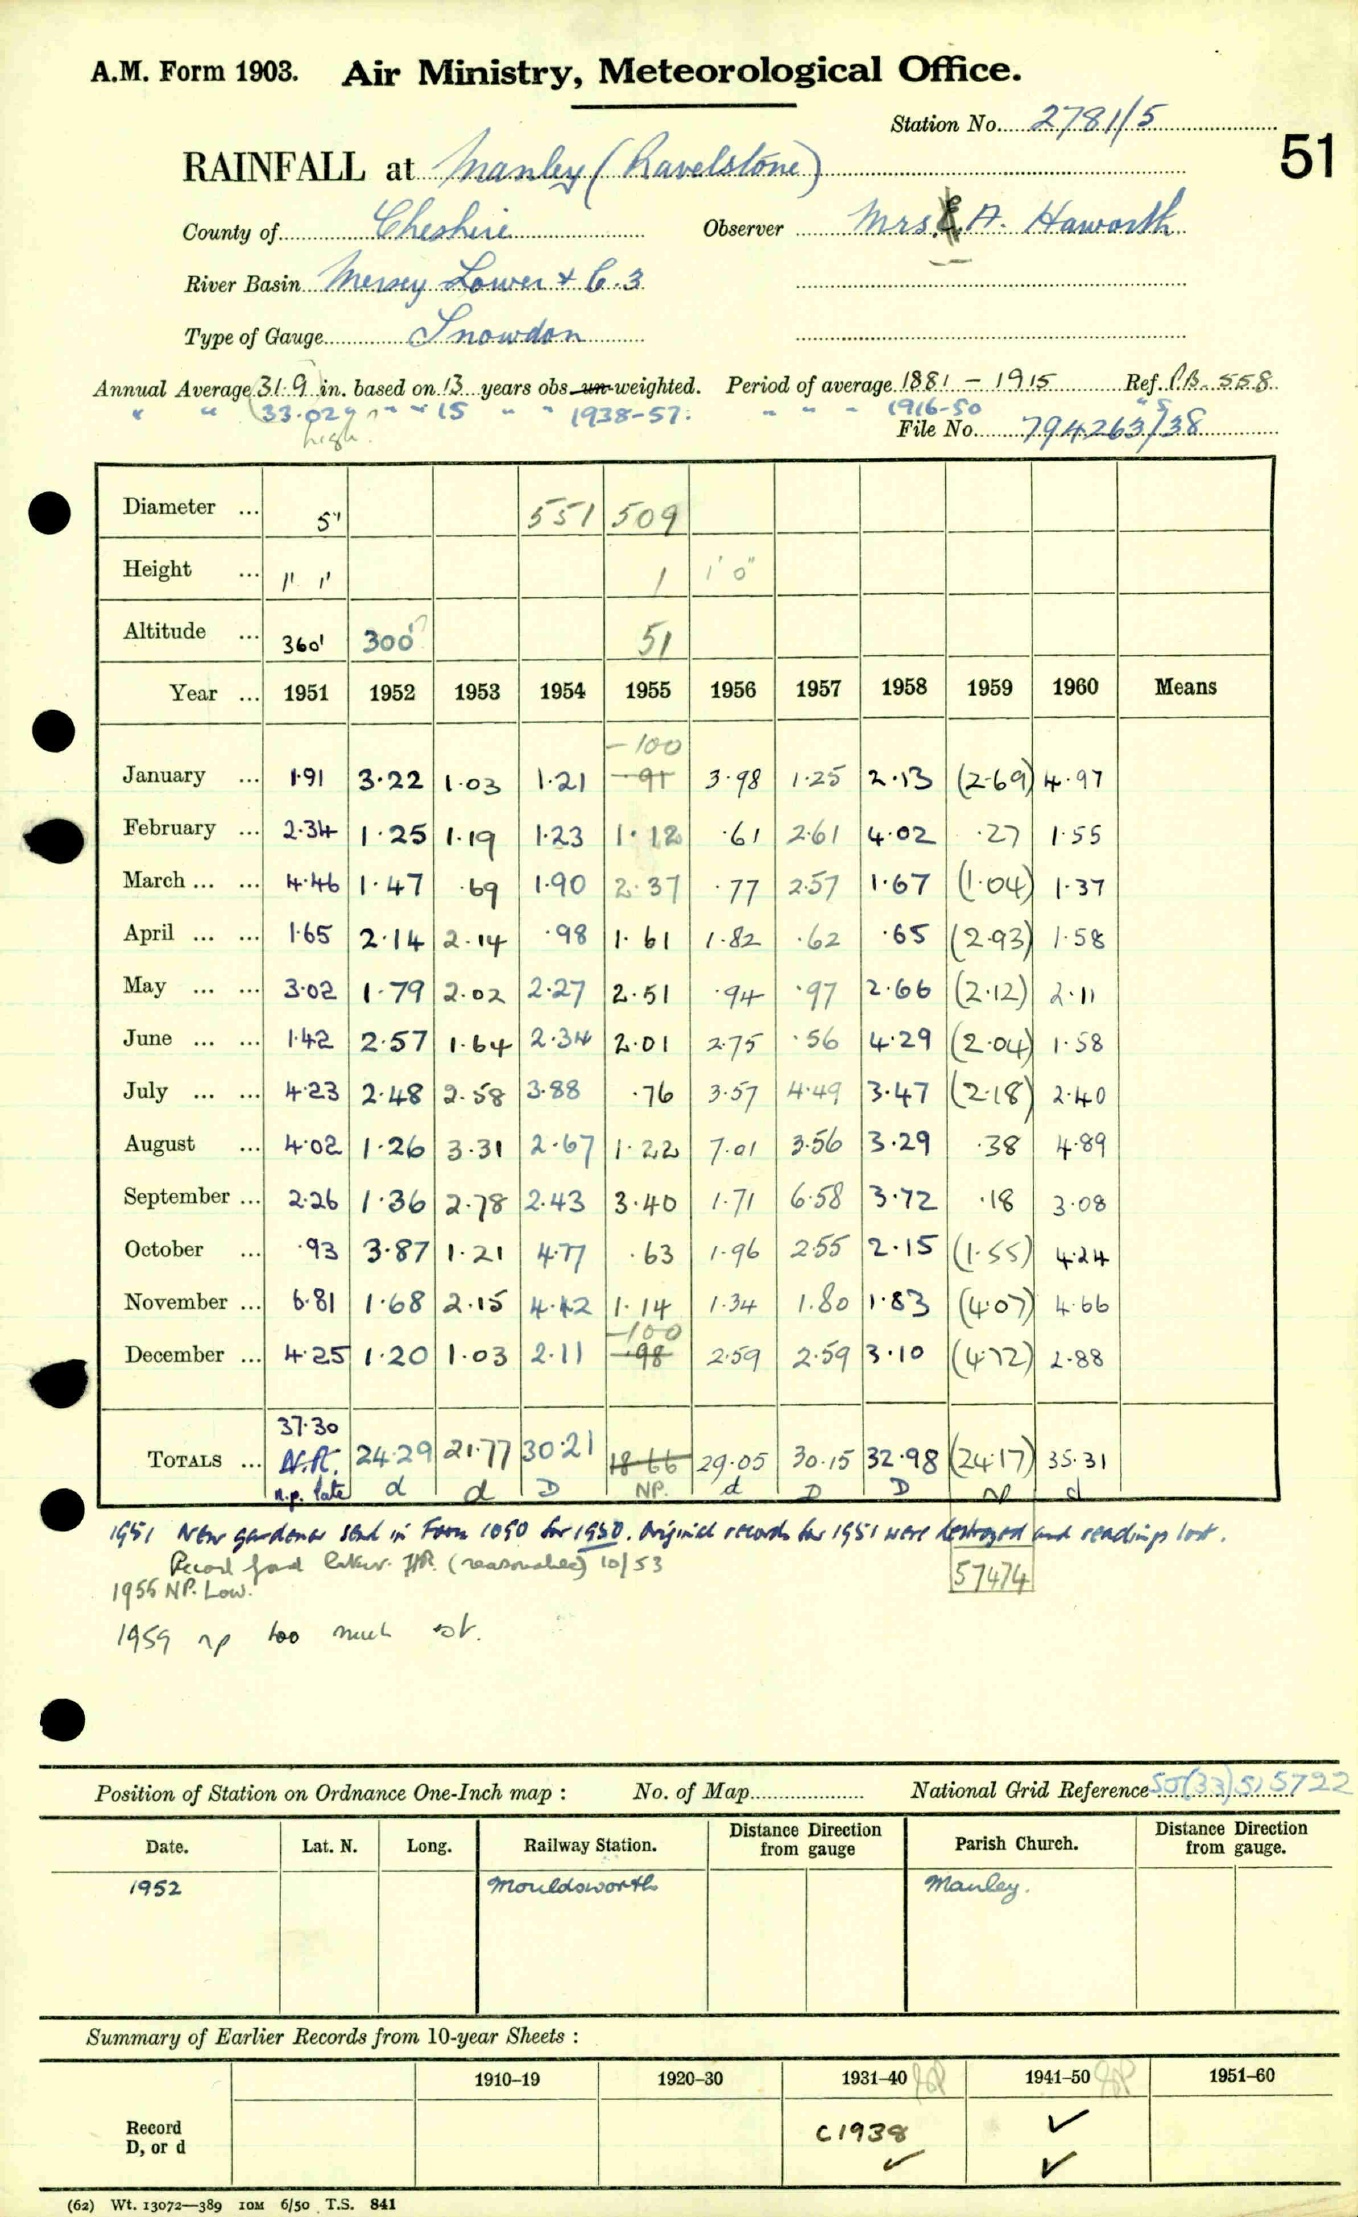 A.M. Form 1903. Air Ministry, Meteorological Office.
Station No. 2781/5
51
RAINFALL at Manley (Ravelstone)
County of Cheshire Observer Mrs. A. Haworth
River Basin Mersey Lower & C.3
Type of Gauge Snowdon
Annual Average (31.9) in. based on 13 years obs. un-weighted. Period of average 1881 - 1915 Ref. P.B. 558
" " (33.02) " " 15 " " 1938-57. " " " 1916-50 " 5
high? File No. 794263/38
Diameter ... 5" 551 509
Height ... 1' 1" 1 1' 0"
Altitude ... 360' 300'? 51
Year ... 1951 1952 1953 1954 1955 1956 1957 1958 1959 1960 Means
-100
January ... 1.91 3.22 1.03 1.21 .91 3.98 1.25 2.13 (2.69) 4.97
February ... 2.34 1.25 1.19 1.23 1.12 .61 2.61 4.02 .27 1.55
March ... ... 4.46 1.47 .69 1.90 2.37 .77 2.57 1.67 (1.04) 1.37
April ... ... 1.65 2.14 2.14 .98 1.61 1.82 .62 .65 (2.93) 1.58
May ... ... 3.02 1.79 2.02 2.27 2.51 .94 .97 2.66 (2.12) 2.11
June ... ... 1.42 2.57 1.64 2.34 2.01 2.75 .56 4.29 (2.04) 1.58
July ... ... 4.23 2.48 2.58 3.88 .76 3.57 4.49 3.47 (2.18) 2.40
August ... 4.02 1.26 3.31 2.67 1.22 7.01 3.56 3.29 .38 4.89
September ... 2.26 1.36 2.78 2.43 3.40 1.71 6.58 3.72 .18 3.08
October ... .93 3.87 1.21 4.77 .63 1.96 2.55 2.15 (1.55) 4.24
November ... 6.81 1.68 2.15 4.42 1.14 1.34 1.80 1.83 (4.07) 4.66
-100
December ... 4.25 1.20 1.03 2.11 .98 2.59 2.59 3.10 (4.72) 2.88
37.30
TOTALS ... N.R. 24.29 21.77 30.21 18.66 29.05 30.15 32.98 (24.17) 35.31
n.p. late d d D NP. d D D np d
1951 New gardener send in Form 1090 for 1950. Original records for 1951 were destroyed and readings lost.
Record found later. (reasonable) 10/53
57474
1955 NP. Low.
1959 np too much est.
Position of Station on Ordnance One-Inch map : No. of Map National Grid Reference SJ(33)515722
Date. Lat. N. Long. Railway Station. Distance Direction from gauge Parish Church. Distance Direction from gauge.
1952 Mouldsworth Manley.
Summary of Earlier Records from 10-year Sheets :
1910–19 1920–30 1931–40 1941–50 1951–60
Record C1938 ✓
D, or d ✓ ✓
(62) Wt. 13072—389 10M 6/50 T.S. 841